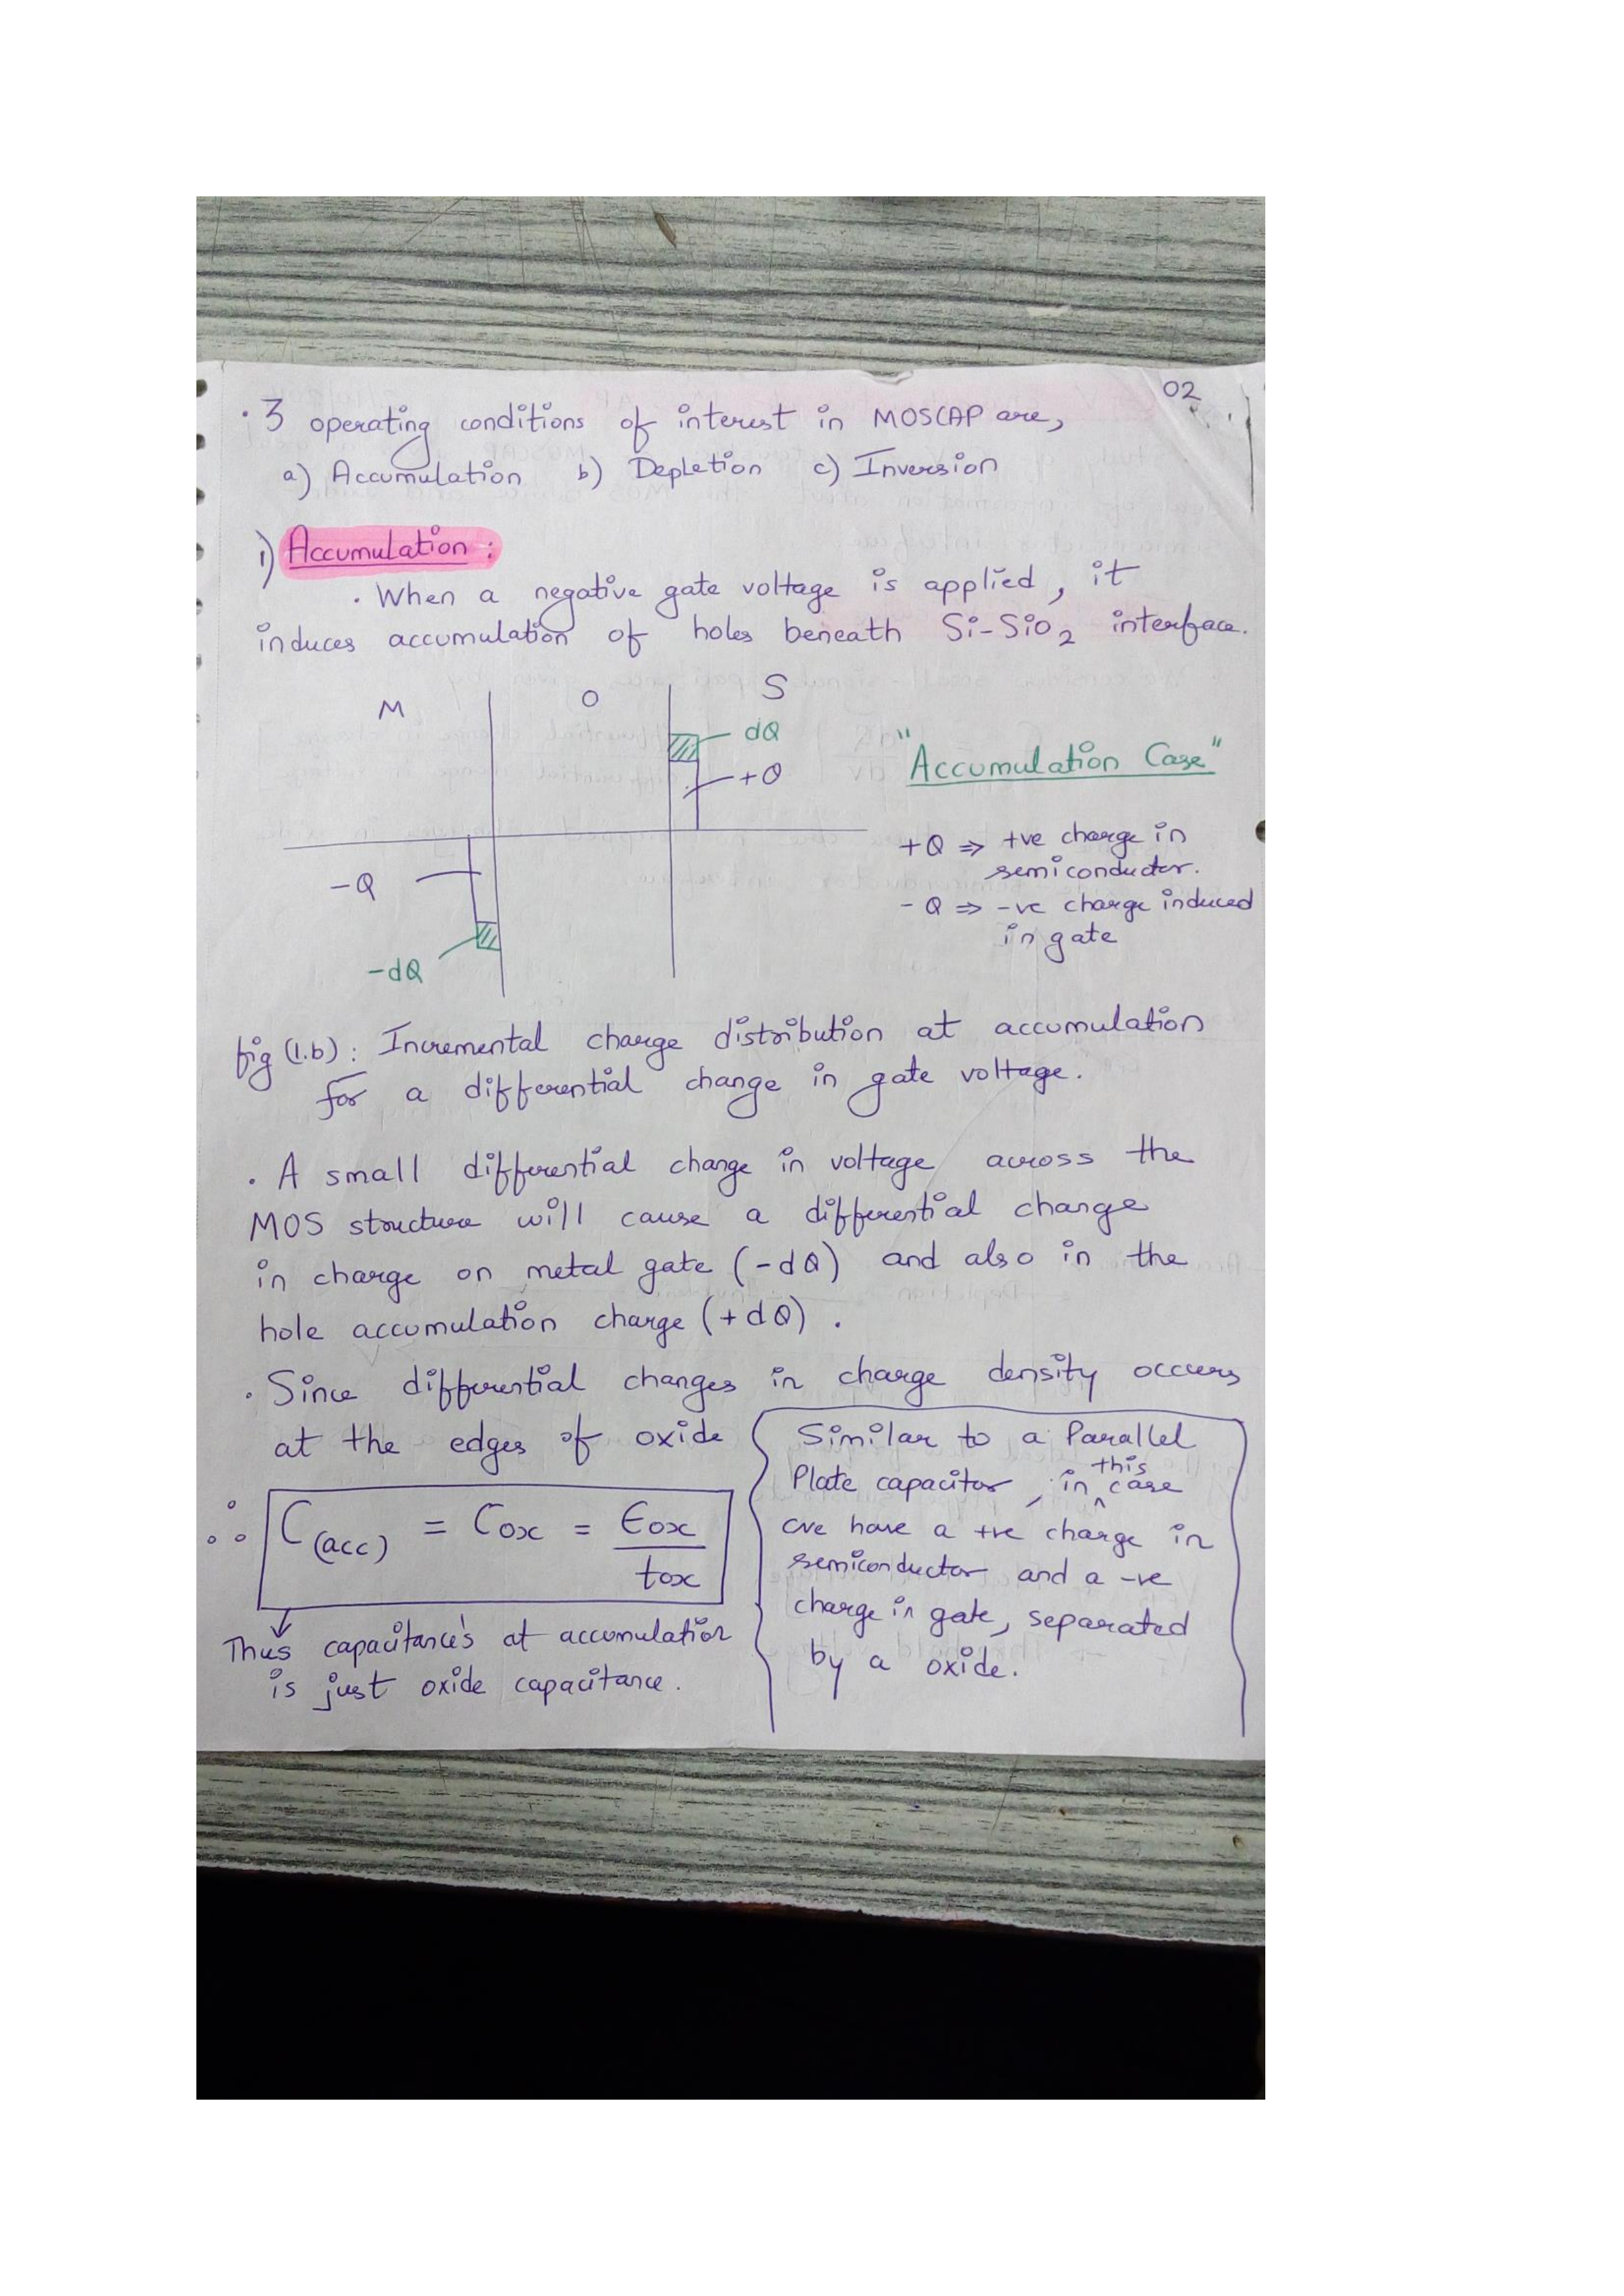 02
. 3 operating conditions of interest in MOSCAP are,
a) Accumulation b) Depletion c) Inversion
i) Accumulation :
. When a negative gate voltage is applied, it
induces accumulation of holes beneath Si-SiO2 interface.
M O S
dQ
+Q
-Q
-dQ
"Accumulation Case"
+Q ⇒ +ve charge in
semiconductor.
-Q ⇒ -ve charge induced
in gate
fig (1.b) : Incremental charge distribution at accumulation
for a differential change in gate voltage.
. A small differential change in voltage across the
MOS structure will cause a differential change
in charge on metal gate (-dQ) and also in the
hole accumulation charge (+dQ) .
. Since differential changes in charge density occurs
at the edges of oxide
∴ C(acc) = Cox = Єox / tox
Thus capacitance's at accumulation
is just oxide capacitance.
Similar to a Parallel
Plate capacitor, in this case
we have a +ve charge in
semiconductor and a -ve
charge in gate, separated
by a oxide.